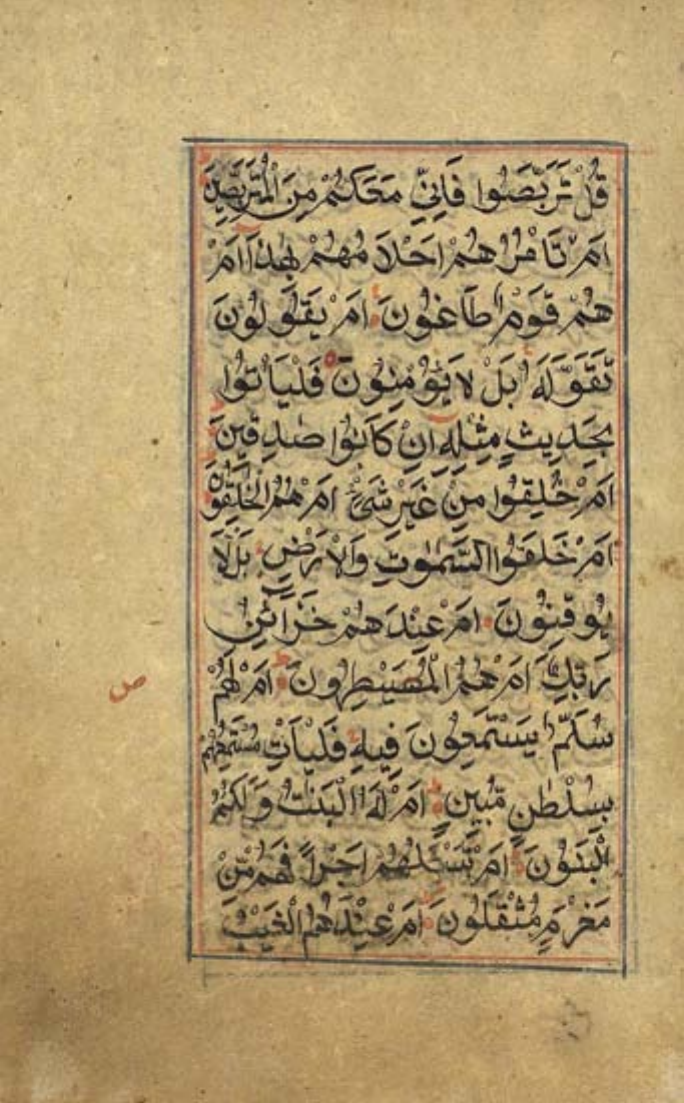 قُلْ تَرَبَّصُوا فَاِنِّي مَعَكُمْ مِنَ الْمُتَرَبِّصِيْنَ
اَمْ تَاْمُرُهُمْ اَحْلَامُهُمْ بِهٰذَا اَمْ
هُمْ قَوْمٌ طَاغُوْنَ اَمْ يَقُوْلُوْنَ
تَقَوَّلَهُ بَلْ لَا يُؤْمِنُوْنَ فَلْيَأْتُوْا
بِحَدِيْثٍ مِثْلِهِ اِنْ كَانُوْا صٰدِقِيْنَ
اَمْ خُلِقُوْا مِنْ غَيْرِ شَيْءٍ اَمْ هُمُ الْخٰلِقُوْنَ
اَمْ خَلَقُوا السَّمٰوٰتِ وَالْاَرْضِ بَلْ لَا
يُوْقِنُوْنَ اَمْ عِنْدَهُمْ خَزَائِنُ
رَبِّكَ اَمْ هُمُ الْمُصَيْطِرُوْنَ اَمْ لَهُمْ
ص
سُلَّمٌ يَسْتَمِعُوْنَ فِيْهِ فَلْيَأْتِ مُسْتَمِعُهُمْ
بِسُلْطٰنٍ مُبِيْنٍ اَمْ لَهُ الْبَنٰتُ وَلَكُمُ
الْبَنُوْنَ اَمْ تَسْـَٔلُهُمْ اَجْرًا فَهُمْ مِنْ
مَغْرَمٍ مُثْقَلُوْنَ اَمْ عِنْدَهُمُ الْغَيْبُ